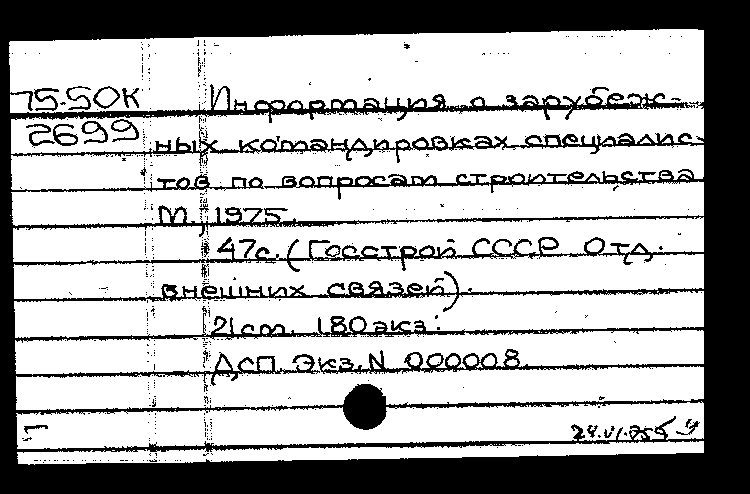 75-50К Информация о зарубеж-
2699 ных командировках специалис-
тов по вопросам строительства.
М., 1975.
47с. (Госстрой СССР Отд.
внешних связей).
21см. 180экз.
ДСП. Экз. N 000008.